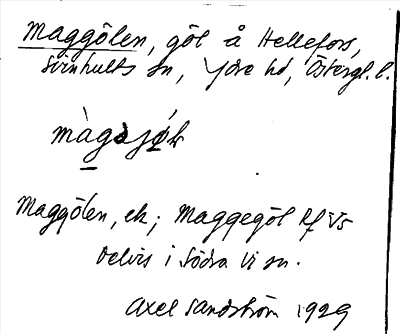 Maggölen, göl å Hellefors,
Svinhults sn, Ydre hd, Östergl. l.
Maggölen, ek; Maggegöl Rf V5
delvis i Södra Vi sn.
Axel Sandström 1929